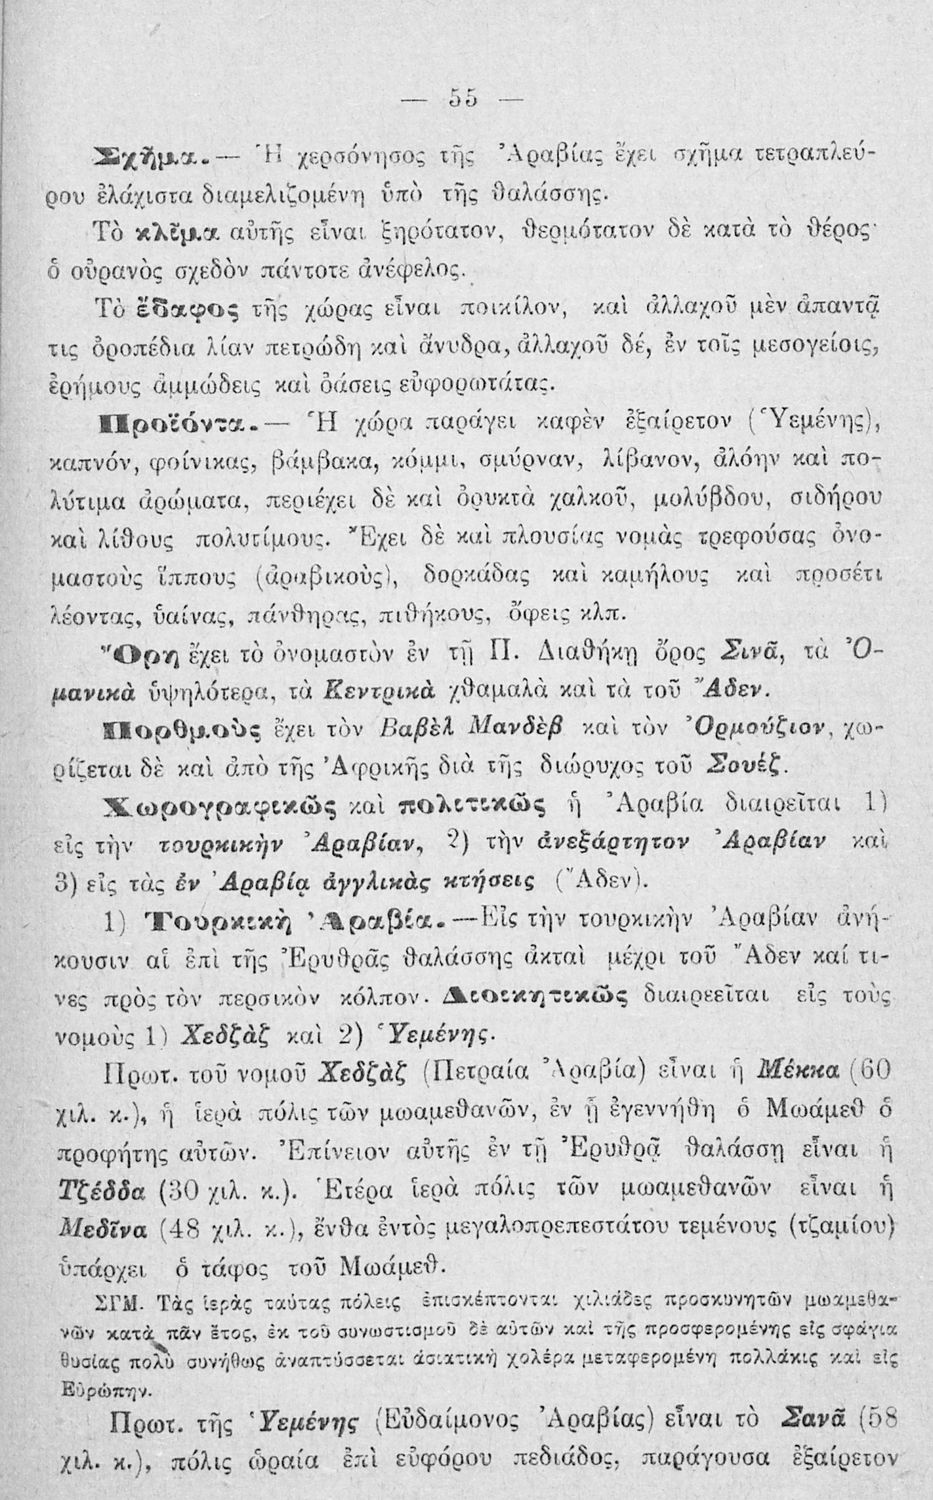 — 55 —
Σχῆμα.— Ἡ χερσόνησος τῆς Ἀραβίας ἔχει σχῆμα τετραπλεύ-
ρου ἐλάχιστα διαμελιζομένη ὑπὸ τῆς θαλάσσης.
Τὸ κλῖμα αὐτῆς εἶναι ξηρότατον, θερμότατον δὲ κατὰ τὸ θέρος·
ὁ οὐρανὸς σχεδὸν πάντοτε ἀνέφελος.
Τὸ ἔδαφος τῆς χώρας εἶναι ποικίλον, καὶ ἀλλαχοῦ μὲν ἀπαντᾷ
τις ὀροπέδια λίαν πετρώδη καὶ ἄνυδρα, ἀλλαχοῦ δέ, ἐν τοῖς μεσογείοις,
ἐρήμους ἀμμώδεις καὶ ὀάσεις εὐφορωτάτας.
Προϊόντα.— Ἡ χώρα παράγει καφὲν ἐξαίρετον (Ὑεμένης),
καπνόν, φοίνικας, βάμβακα, κόμμι, σμύρναν, λίβανον, ἀλόην καὶ πο-
λύτιμα ἀρώματα, περιέχει δὲ καὶ ὀρυκτὰ χαλκοῦ, μολύβδου, σιδήρου
καὶ λίθους πολυτίμους. Ἔχει δὲ καὶ πλουσίας νομὰς τρεφούσας ὀνο-
μαστοὺς ἵππους (ἀραβικοὺς), δορκάδας καὶ καμήλους καὶ προσέτι
λέοντας, ὑαίνας, πάνθηρας, πιθήκους, ὄφεις κλπ.
Ὄρη ἔχει τὸ ὀνομαστὸν ἐν τῇ Π. Διαθήκῃ ὄρος Σινᾶ, τὰ Ὀ-
μανικὰ ὑψηλότερα, τὰ Κεντρικὰ χθαμαλὰ καὶ τὰ τοῦ Ἄδεν.
Πορθμοὺς ἔχει τὸν Βαβὲλ Μανδὲβ καὶ τὸν Ὀρμούζιον, χω-
ρίζεται δὲ καὶ ἀπὸ τῆς Ἀφρικῆς διὰ τῆς διώρυχος τοῦ Σουέζ.
Χωρογραφικῶς καὶ πολιτικῶς ἡ Ἀραβία διαιρεῖται 1)
εἰς τὴν τουρκικὴν Ἀραβίαν, 2) τὴν ἀνεξάρτητον Ἀραβίαν καὶ
3) εἰς τὰς ἐν Ἀραβίᾳ ἀγγλικὰς κτήσεις (Ἄδεν).
1) Τουρκικὴ Ἀραβία.—Εἰς τὴν τουρκικὴν Ἀραβίαν ἀνή-
κουσιν αἱ ἐπὶ τῆς Ἐρυθρᾶς θαλάσσης ἀκταὶ μέχρι τοῦ Ἄδεν καί τι-
νες πρὸς τὸν περσικὸν κόλπον. Διοικητικῶς διαιρεεῖται εἰς τοὺς
νομοὺς 1) Χεδζὰζ καὶ 2) Ὑεμένης.
Πρωτ. τοῦ νομοῦ Χεδζὰζ (Πετραία Ἀραβία) εἶναι ἡ Μέκκα (60
χιλ. κ.), ἡ ἱερὰ πόλις τῶν μωαμεθανῶν, ἐν ᾗ ἐγεννήθη ὁ Μωάμεθ ὁ
προφήτης αὐτῶν. Ἐπίνειον αὐτῆς ἐν τῇ Ἐρυθρᾷ θαλάσσῃ εἶναι ἡ
Τζέδδα (30 χιλ. κ.). Ἑτέρα ἱερὰ πόλις τῶν μωαμεθανῶν εἶναι ἡ
Μεδῖνα (48 χιλ. κ.), ἔνθα ἐντὸς μεγαλοπρεπεστάτου τεμένους (τζαμίου)
ὑπάρχει ὁ τάφος τοῦ Μωάμεθ.
ΣΓΜ. Τὰς ἱερὰς ταύτας πόλεις ἐπισκέπτονται χιλιάδες προσκυνητῶν μωαμεθα-
νῶν κατὰ πᾶν ἔτος, ἐκ τοῦ συνωστισμοῦ δὲ αὐτῶν καὶ τῆς προσφερομένης εἰς σφάγια
θυσίας πολὺ συνήθως ἀναπτύσσεται ἀσιατικὴ χολέρα μεταφερομένη πολλάκις καὶ εἰς
Εὐρώπην.
Πρωτ. τῆς Ὑεμένης (Εὐδαίμονος Ἀραβίας) εἶναι τὸ Σανᾶ (58
χιλ. κ.), πόλις ὡραία ἐπὶ εὐφόρου πεδιάδος, παράγουσα ἐξαίρετον